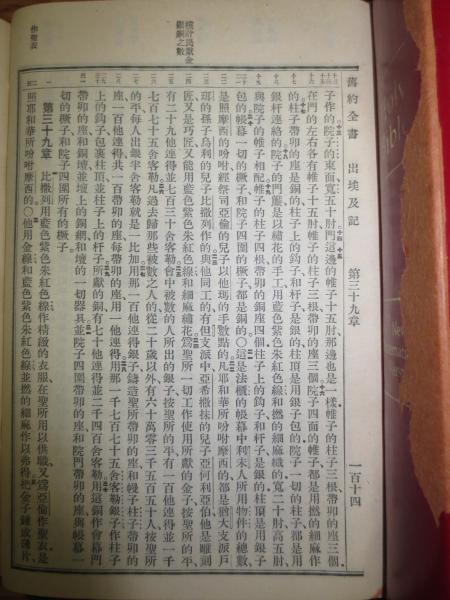 舊約全書 出埃及記 第三十九章 一百十四
子作的院子的東面寬五十肘門這邊的帷子十五肘那邊也是一樣帷子的柱子三根帶卯的座三個
在門的左右各有帷子十五肘帷子的柱子三根帶卯的座三個院子四面的帷子都是用撚的細麻作
的柱子帶卯的座是銅的柱子上的鈎子和杆子是銀的柱頂是用銀子包的院子一切的柱子都是用
銀杆連絡的院子的門簾是以繡花的手工用藍色紫色朱紅色線和撚的細麻織的寬二十肘高五肘
與院子的帷子相配帷子的柱子四根帶卯的銅座四個柱子上的鈎子和杆子是銀的柱頂是用銀子
包的帳幕一切的橛子和院子四圍的橛子都是銅的○這是法櫃的帳幕中利未人所用物件的總數
是照摩西的吩咐經祭司亞倫的兒子以他瑪的手數點的凡耶和華所吩咐摩西的都是猶大支派戶
珥的孫子烏利的兒子比撒列作的與他同工的有但支派中亞希撒抹的兒子亞何利亞伯他是雕刻
匠又是巧匠又能用藍色紫色朱紅色線和細麻繡花爲聖所一切工作使用所獻的金子按聖所的平
有二十九他連得並七百三十舍客勒會中被數的人所出的銀子按聖所的平有一百他連得並一千
七百七十五舍客勒凡過去歸那些被數之人的從二十歲以外有六十萬零三千五百五十人按聖所
的平每人出銀半舍客勒就是一比加用那一百他連得銀子鑄造聖所帶卯的座和幔子柱子帶卯的
座一百他連得共一百帶卯的座每帶卯的座用一他連得用那一千七百七十五舍客勒銀子作柱子
上的鈎子包裹柱頂並柱子上的杆子所獻的銅有七十他連得並二千四百舍客勒用這銅作會幕門
帶卯的座和銅壇並壇上的銅網和壇的一切器具並院子四圍帶卯的座和院門帶卯的座與帳幕一
切的橛子和院子四圍所有的橛子
第三十九章 比撒列用藍色紫色朱紅色線作精緻的衣服在聖所用以供職又爲亞倫作聖衣是
照耶和華所吩咐摩西的○他用金線和藍色紫色朱紅色線並撚的細麻作以弗得把金子錘成薄片
核計民獻金
銀銅之數
作聖衣